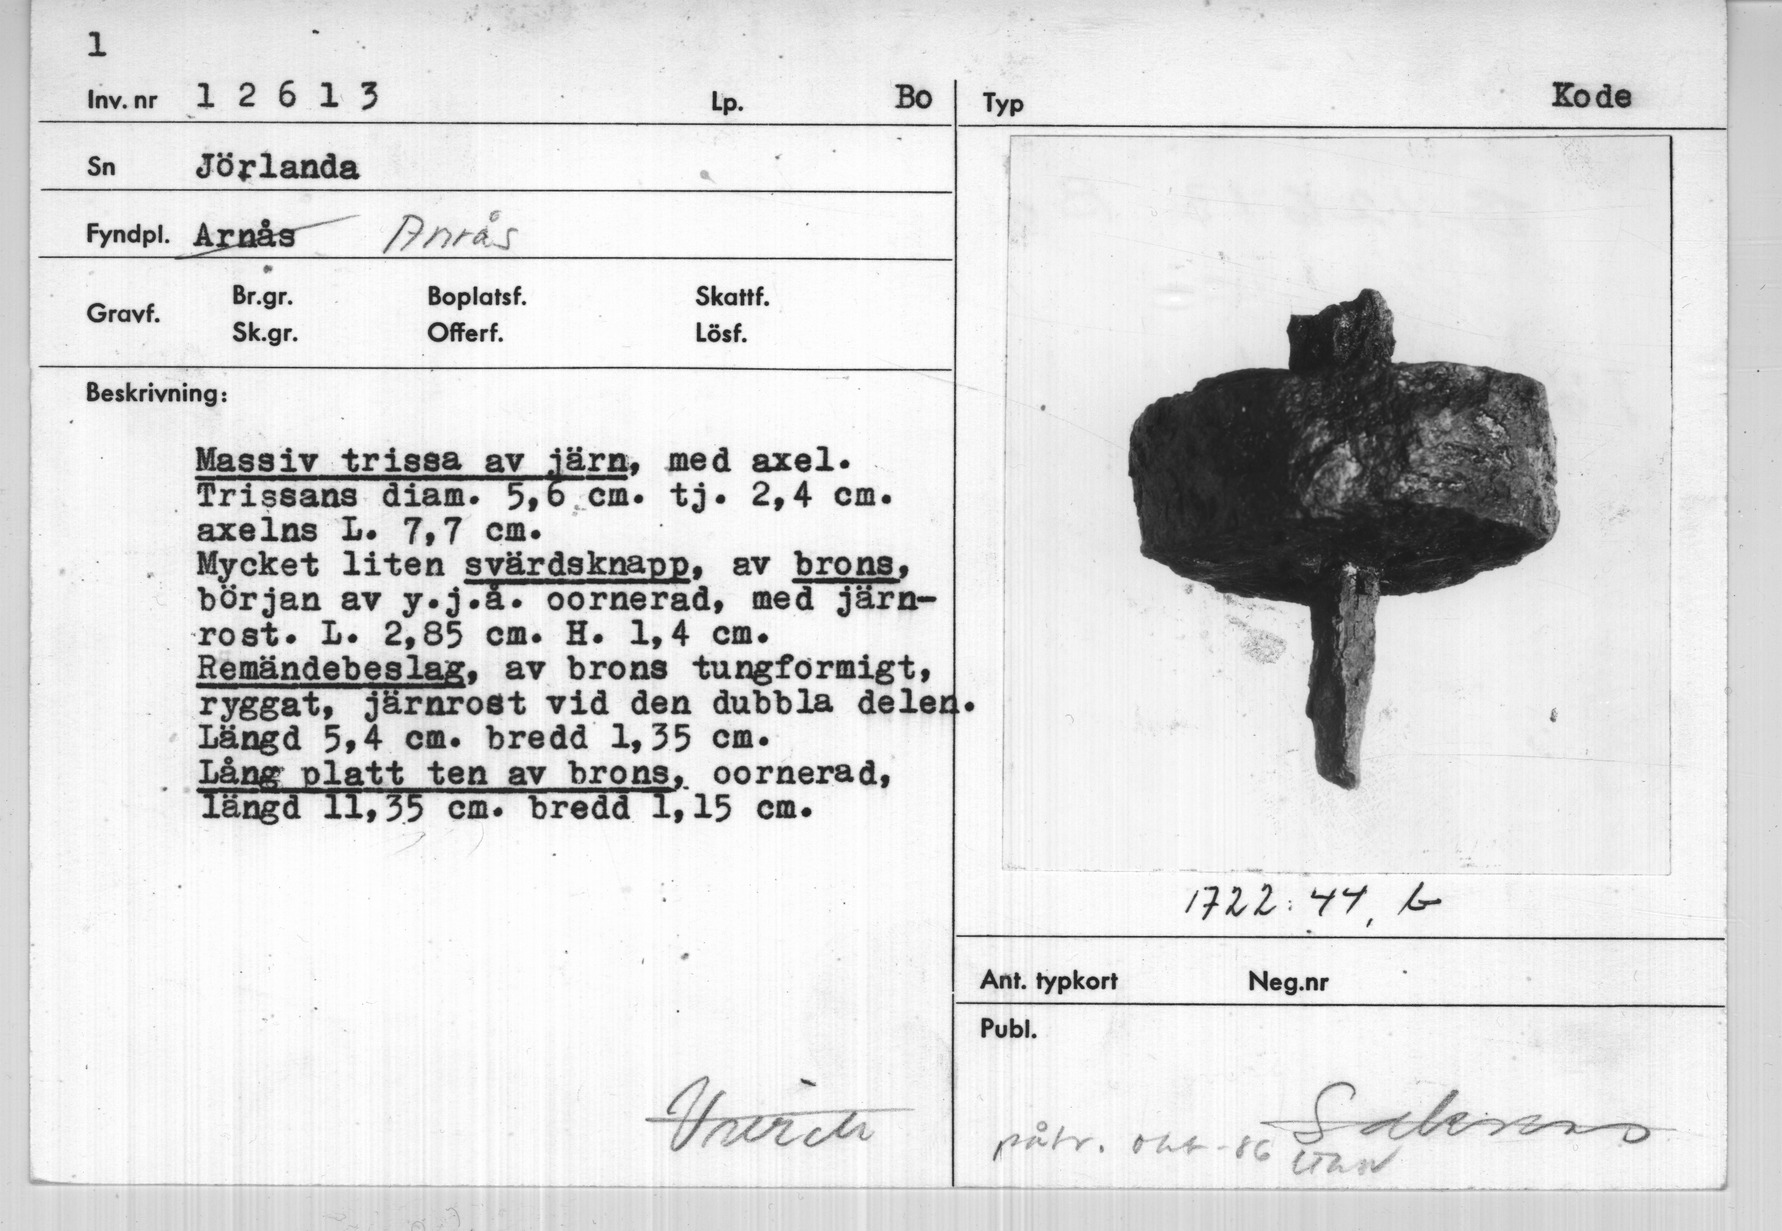 1
Inv. nr 1 2 6 1 3 Lp. Bo
Sn Jörlanda
Fyndpl. Arnås Anrås
Gravf. Br.gr. Boplatsf. Skattf.
Sk.gr. Offerf. Lösf.
Beskrivning:
Massiv trissa av järn, med axel.
Trissans diam. 5,6 cm. tj. 2,4 cm.
axelns L. 7,7 cm.
Mycket liten svärdsknapp, av brons,
början av y.j.å. oornerad, med järn-
rost. L. 2,85 cm. H. 1,4 cm.
Remändebeslag, av brons tungformigt,
ryggat, järnrost vid den dubbla delen.
Längd 5,4 cm. bredd 1,35 cm.
Lång platt ten av brons, oornerad,
längd 11,35 cm. bredd 1,15 cm.
Typ Kode
1722:44, b
Ant. typkort Neg.nr
Publ.
Saknas
påtr. okt -86